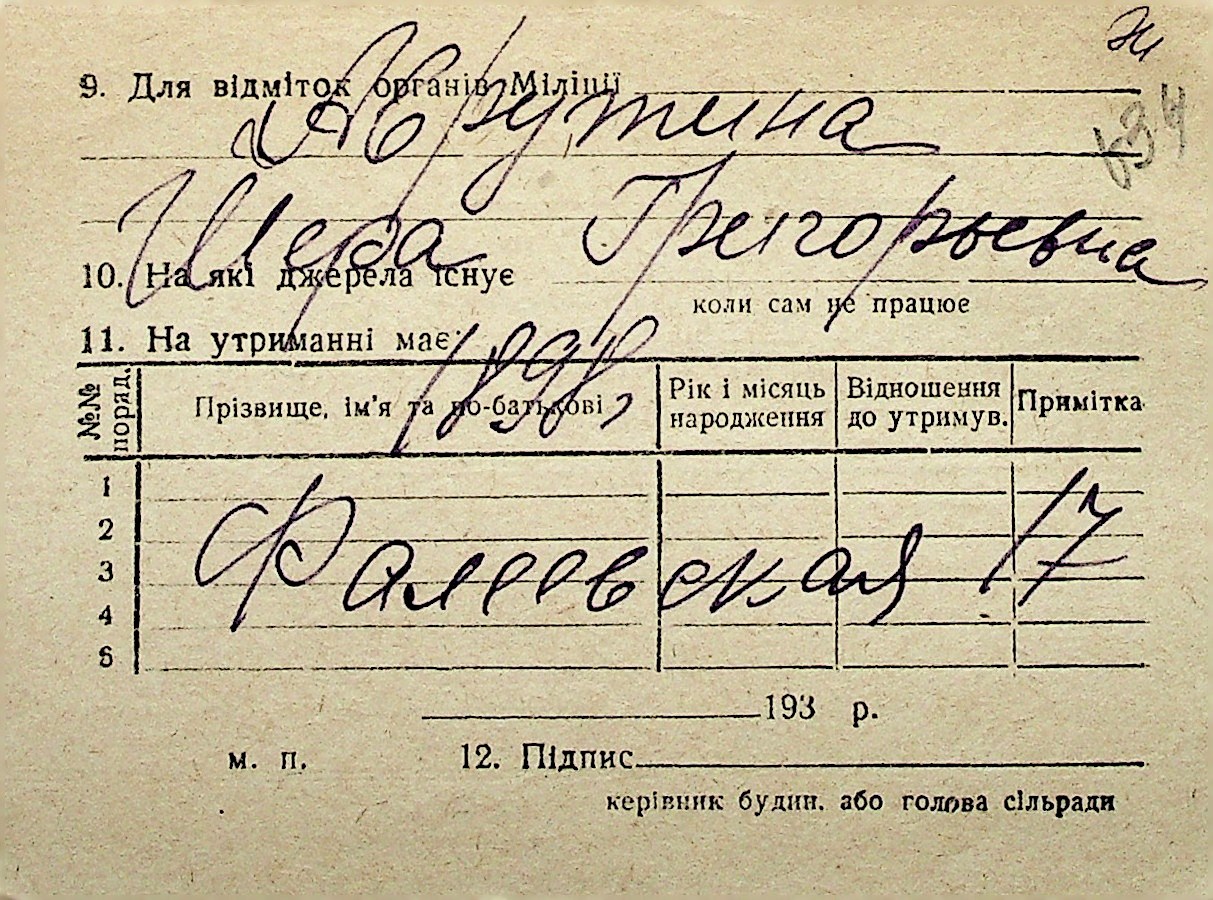 Ж
634
9. Для відміток органів Міліції
Аврутина
Шера Григорьевна
10. На які джерела існує
коли сам не працює
11. На утриманні має:
1898,
№№ поряд.
Прізвище, ім'я та по-батькові
Рік і місяць народження
Відношення до утримув.
Примітка
1
2
3
4
5
Фалеевская 17
193 р.
м. п.
12. Підпис
керівник будин. або голова сільради